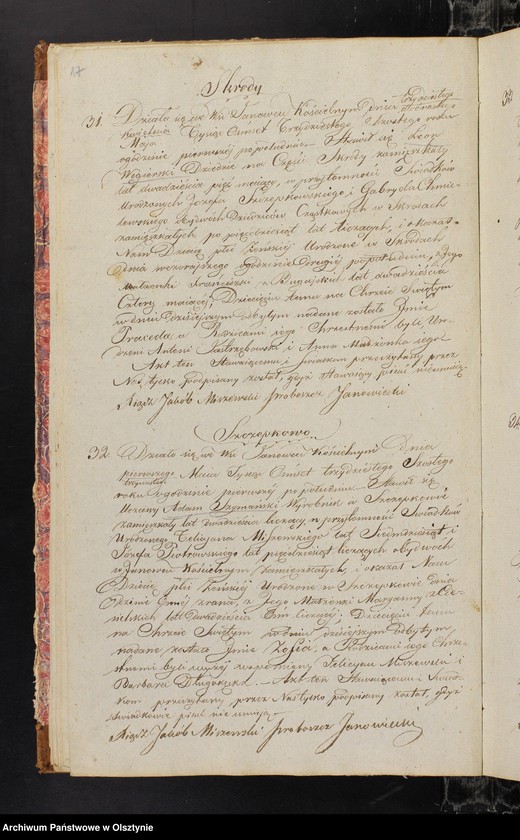 17
Skrody
31 Działo się we Wsi Janowcu Kościelnym dnia trzydziestego
Maja Tysiąc Ośmset Trzydziestego Szóstego roku
o godzinie pierwszej po południu Stawił się Leon
Dziedzic na Części Skrody zamieszkały
lat dwadzieścia pięć mający, w przytomności Świadków
Urodzonych Józefa Szczepkowskiego i Gabryela Chmie-
lewskiego obydwóch Dziedziców Cząstkowych w Skrodach
zamieszkałych po pięćdziesiąt lat liczących, i okazał
Nam Dziecię płci żeńskiej Urodzone w Skrodach
Dnia wczorajszego o godzinie Drugiej po południu, z Jego
Małżonki Franciszki z Bugajskich lat dwadzieścia
Cztery mającej, Dziecięciu temu na Chrzcie Świętym
w dniu Dzisiejszym odbytym nadane zostało Imie
Praxeda, a Rodzicami iego Chrzestnemi byli Uro-
dzeni Antoni Jastrzębowski i Anna
Akt ten Stawaiącemu i Świadkom przeczytany, przez
Nas tylko podpisany został, gdyż Stawaiący pisać nieumieią
Xiądz Jakób Miszewski Proboszcz Janowiecki
Szczepkowo
32 Działo się we Wsi Janowcu Kościelnym Dnia
trzydziestego
pierwszego Maia Tysiąc Ośmset trzydziestego Szóstego
roku o godzinie pierwszej po południu Stawił się
Uczciwy Adam Szymański Wyrobnik w Szczepkowie
zamięszkały lat dwadzieścia liczący, w przytomności Świadków
Urodzonego Felicyana Miszewskiego lat Siedmdziesiąt i
Józefa Piotrowskiego lat pięćdziesiąt liczących obydwóch
w Janowcu Kościelnym zamięszkałych, i okazał Nam
Dziecię płci żeńskiej Urodzone w Szczepkowie dnia
godzinie z rana, z Jego Małżonki Maryanny z
lat dwadzieścia Ośm liczącej; Dziecięciu temu
na Chrzcie Świętym w dniu dzisiejszym odbytym,
nadane zostało Imie Zofia, a Rodzicami iego Chrze-
stnemi byli wyżej wspomniany Felicyan Miszewski i
Barbara Akt ten Stawaiącemu i Świad-
kom przeczytany, przez Nas tylko podpisany został, gdyż
Świadkowie pisać nie umieią
Xiądz Jakób Miszewski Proboszcz Janowiecki
Archiwum Państwowe w Olsztynie